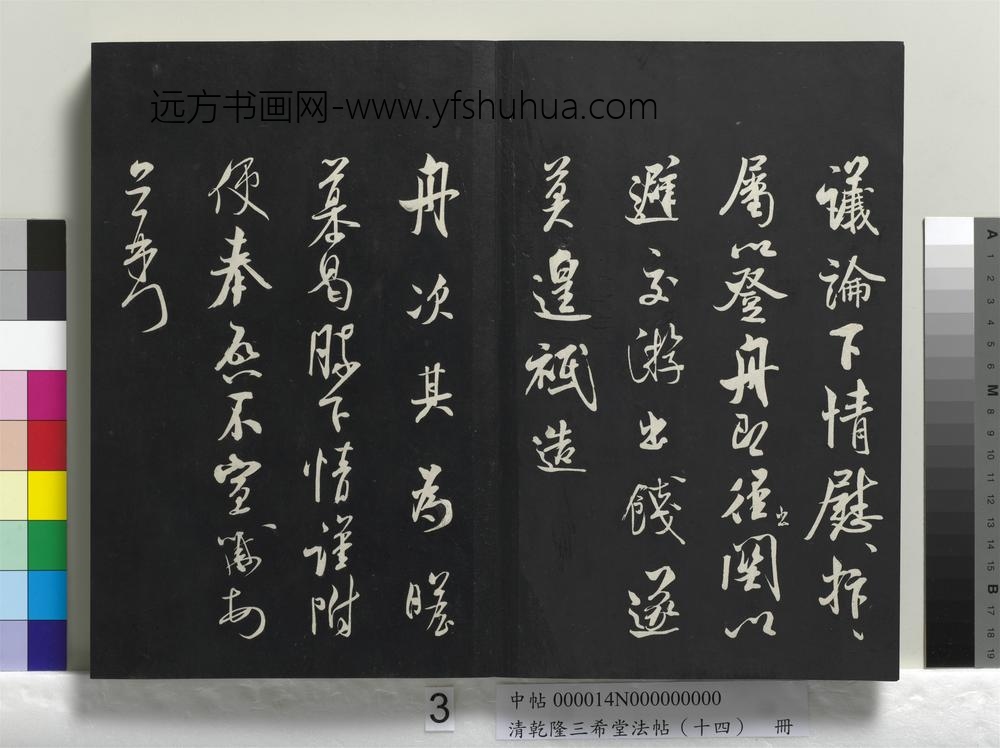 远方书画网-www.yfshuhua.com
議論下情慰抃〻
屬以登舟即徑出關以
避交游出餞遂
莫遑祗造
舟次其為瞻
慕曷勝下情謹附
便奉啓不宣
3
中帖 000014N000000000
清乾隆三希堂法帖（十四） 冊
A 1 2 3 4 5 6 M 8 9 10 11 12 13 14 15 B 17 18 19